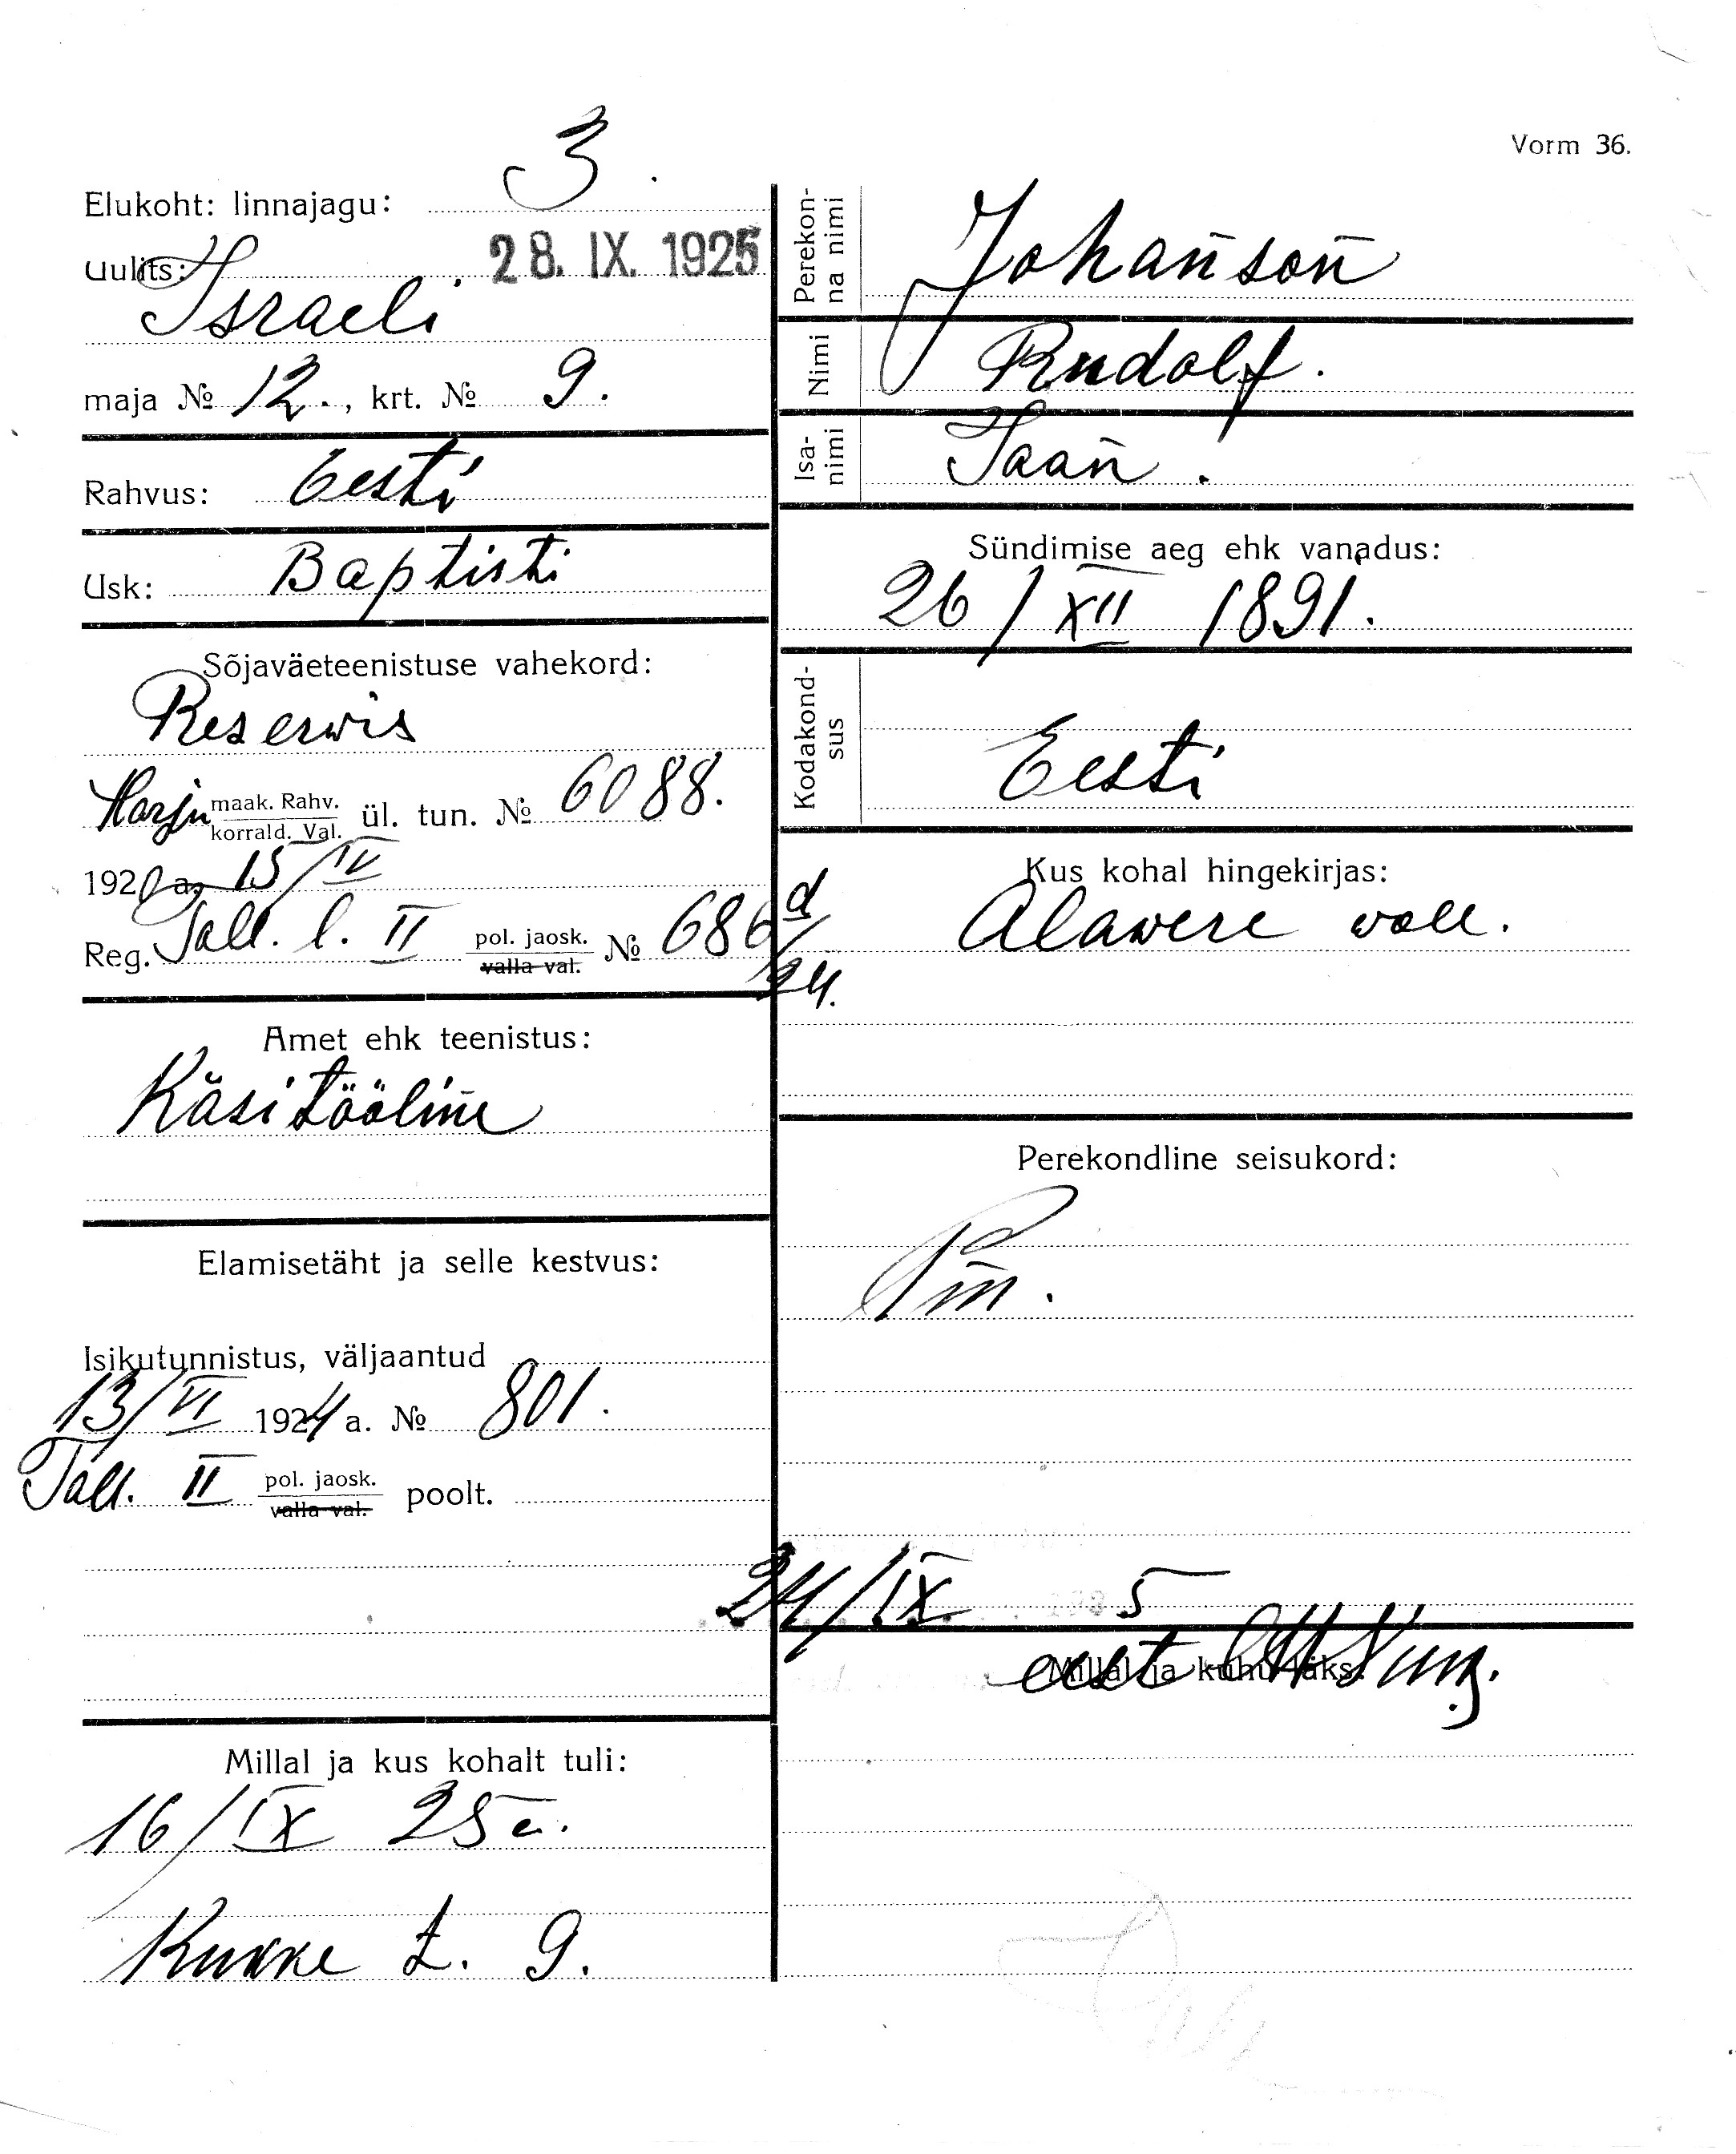 Vorm 36.
Elukoht: linnajagu: 3.
28. IX. 1925
Uulits: Israeli
maja № 12., krt. № 9.
Rahvus: Eesti
Usk: Baptisti
Sõjaväeteenistuse vahekord:
Reserwis
Harju maak. Rahv. ül. tun. № 6088.
korrald. Val.
1920 a. 15/IV
Reg. Tall. l. II pol. jaosk. № 686 d/24.
valla val.
Amet ehk teenistus:
Käsitööline
Elamisetäht ja selle kestvus:
Isikutunnistus, väljaantud
13/VI 1924 a. № 801.
Tall. II pol. jaosk. poolt.
valla val.
Millal ja kus kohalt tuli:
16/IX 25 a.
t. 9.
Perekon-
na nimi
Johanson
Nimi
Rudolf.
Isa-
nimi
Jaan.
Sündimise aeg ehk vanadus:
26/XII 1891.
Kodakond-
sus
Eesti
Kus kohal hingekirjas:
Alawere wall.
Perekondline seisukord:
24/IX 5
Millal ja kuhu läks:
eest